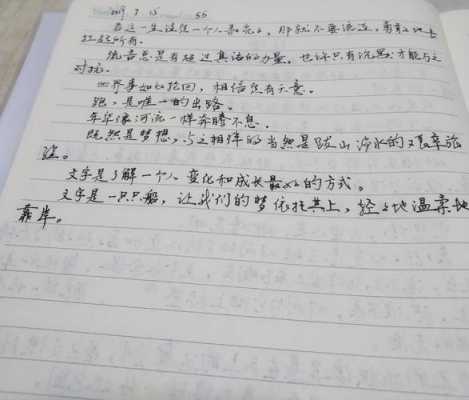 2019 7 15 55
在这一生该凭一个人来完，那就不要流连，勇敢地去
拉起所有。
流言总是有超过真话的力量，也许只有沉默才能与之
对抗。
世界事如此轮回，相信总有天意。
跑，是唯一的出路。
年年像河流一样奔腾不息，
既然是梦想，与之相伴的当然是跋山涉水的艰辛旅
途。
文字是了解一个人变化和成长最好的方式。
文字是一只只船，让我们的梦依托其上，轻轻地温柔地
靠岸。